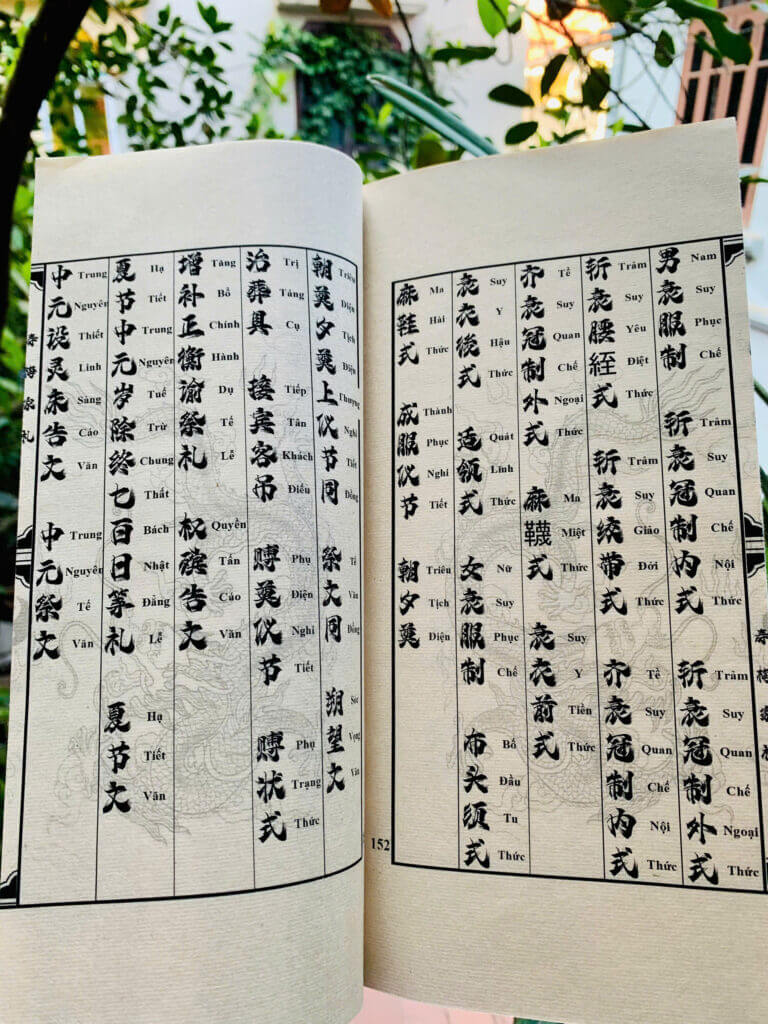 男衰服制 斩衰冠制内式 斩衰冠制外式
Nam Suy Phục Chế Trảm Suy Quan Chế Nội Thức Trảm Suy Quan Chế Ngoại Thức
斩衰腰絰式 斩衰绞带式 齐衰冠制内式
Trảm Suy Yêu Điệt Thức Trảm Suy Giảo Đới Thức Tề Suy Quan Chế Nội Thức
齐衰冠制外式 麻韈式 衰衣前式
Tề Suy Quan Chế Ngoại Thức Ma Miệt Thức Suy Y Tiền Thức
衰衣後式 适领式 女衰服制 布头须式
Suy Y Hậu Thức Quát Lĩnh Thức Nữ Suy Phục Chế Bố Đầu Tu Thức
麻鞋式 成服仪节 朝夕奠
Ma Hài Thức Thành Phục Nghi Tiết Triêu Tịch Điện
152
朝奠夕奠上仪节同 祭文同 朔望文
Triêu Điện Tịch Điện Thượng Nghi Tiết Đồng Tế Văn Đồng Sóc Vọng Văn
治葬具 接宾客吊 赙奠仪节 赙状式
Trị Táng Cụ Tiếp Tân Khách Điếu Phụ Điện Nghi Tiết Phụ Trạng Thức
增补正衡渝祭礼 权殡告文
Tăng Bổ Chính Hành Dụ Tế Lễ Quyền Tấn Cáo Văn
夏节中元岁除终七百日等礼 夏节文
Hạ Tiết Trung Nguyên Tuế Trừ Chung Thất Bách Nhật Đẳng Lễ Hạ Tiết Văn
中元设灵床告文 中元祭文
Trung Nguyên Thiết Linh Sàng Cáo Văn Trung Nguyên Tế Văn